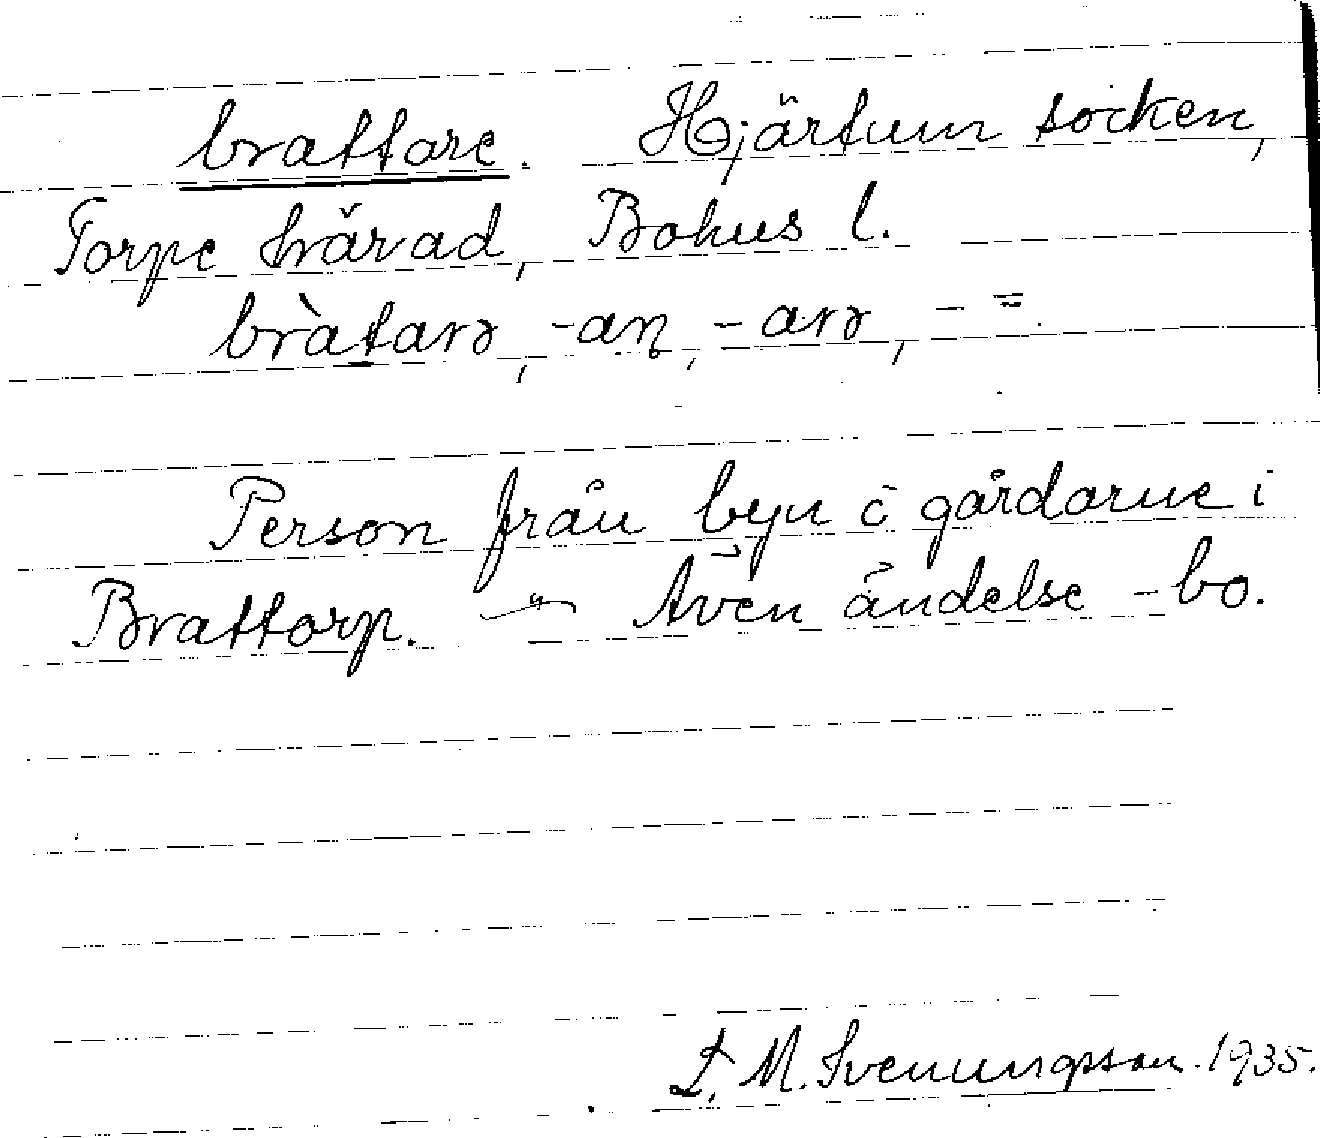 brattare. Hjärtum socken,
Torpe härad, Bohus l.
bràtarə, -aṇ, -arə, - =.
Person från byn o gårdarne i
Brattorp. — Även ändelse -bo.
L. M. Svenungsson. 1935.